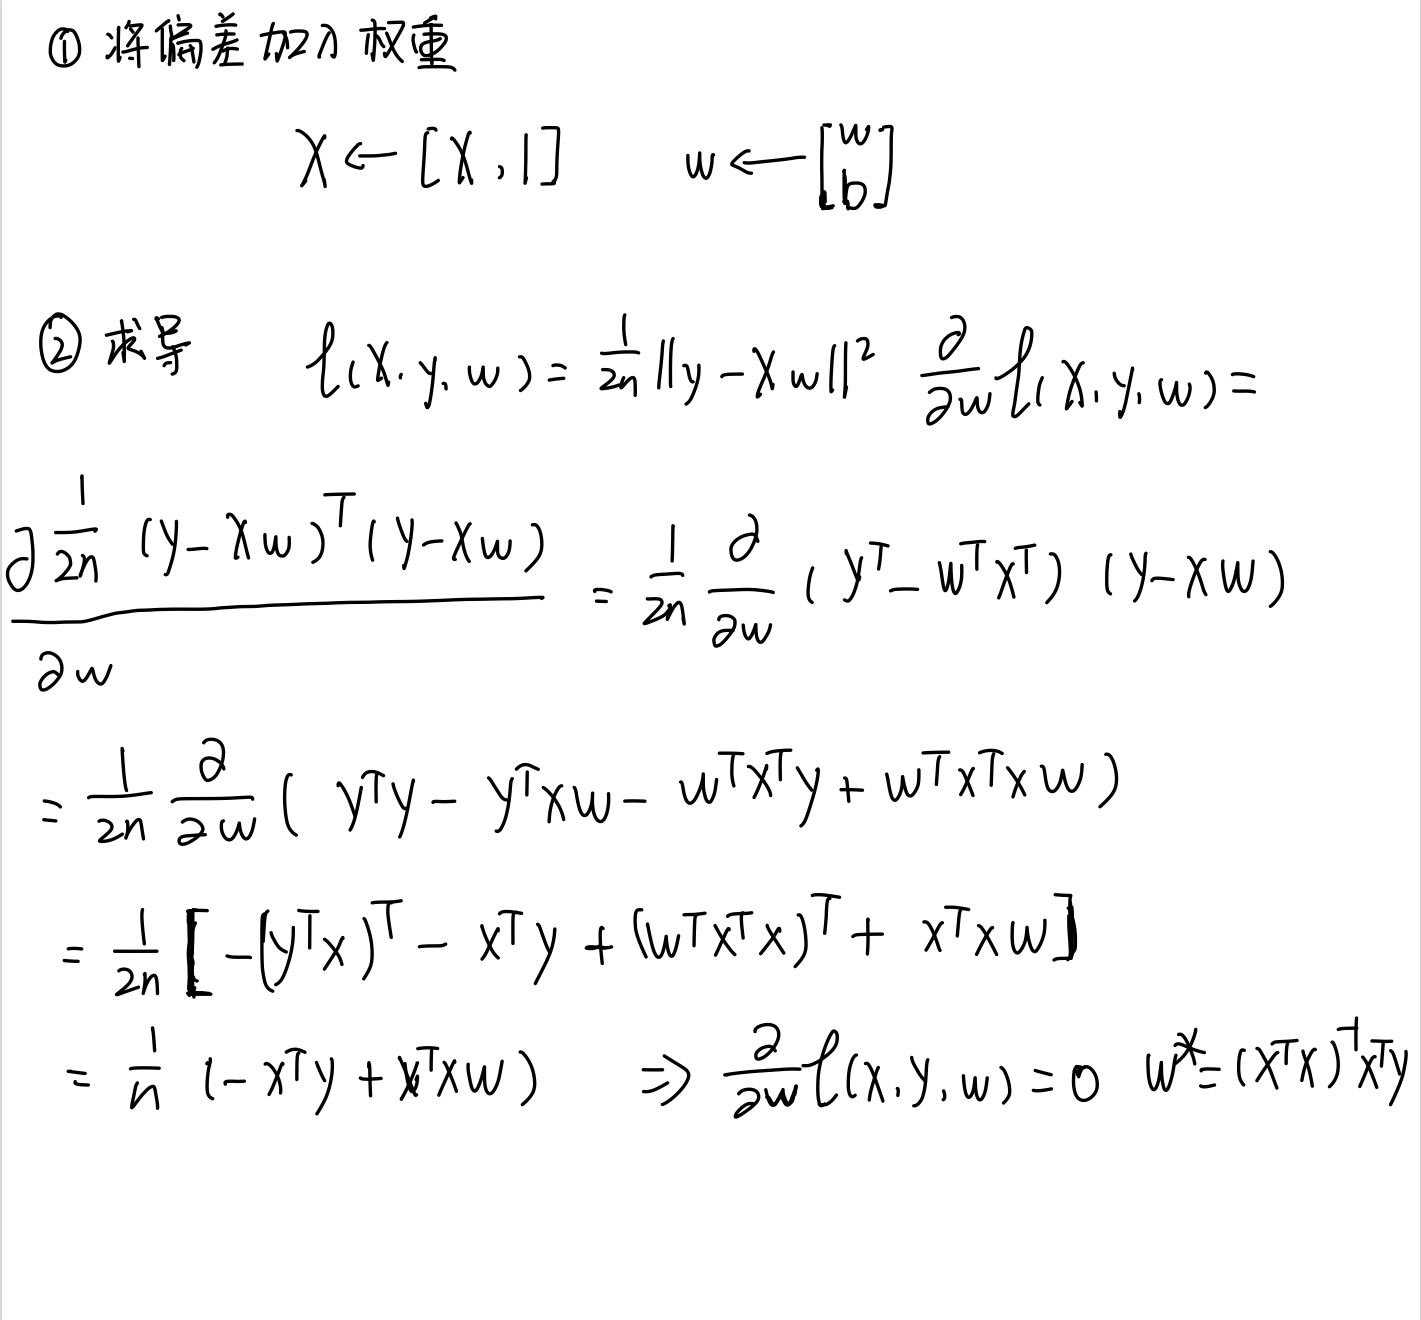 ① 将偏差加入权重
X ← [X, 1]    w ← [w b]
② 求导    ℓ(X, y, w) = 1/2n ||y - Xw||² ∂/∂w ℓ(X, y, w) =
∂ 1/2n (y - Xw)ᵀ(y - Xw) / ∂w = 1/2n ∂/∂w (yᵀ - wᵀXᵀ)(y - Xw)
= 1/2n ∂/∂w (yᵀy - yᵀXw - wᵀXᵀy + wᵀXᵀXw)
= 1/2n [-(yᵀX)ᵀ - Xᵀy + (wᵀXᵀX)ᵀ + XᵀXw]
= 1/n (-Xᵀy + XᵀXw)    ⇒ ∂/∂w ℓ(X, y, w) = 0  w* = (XᵀX)⁻¹Xᵀy